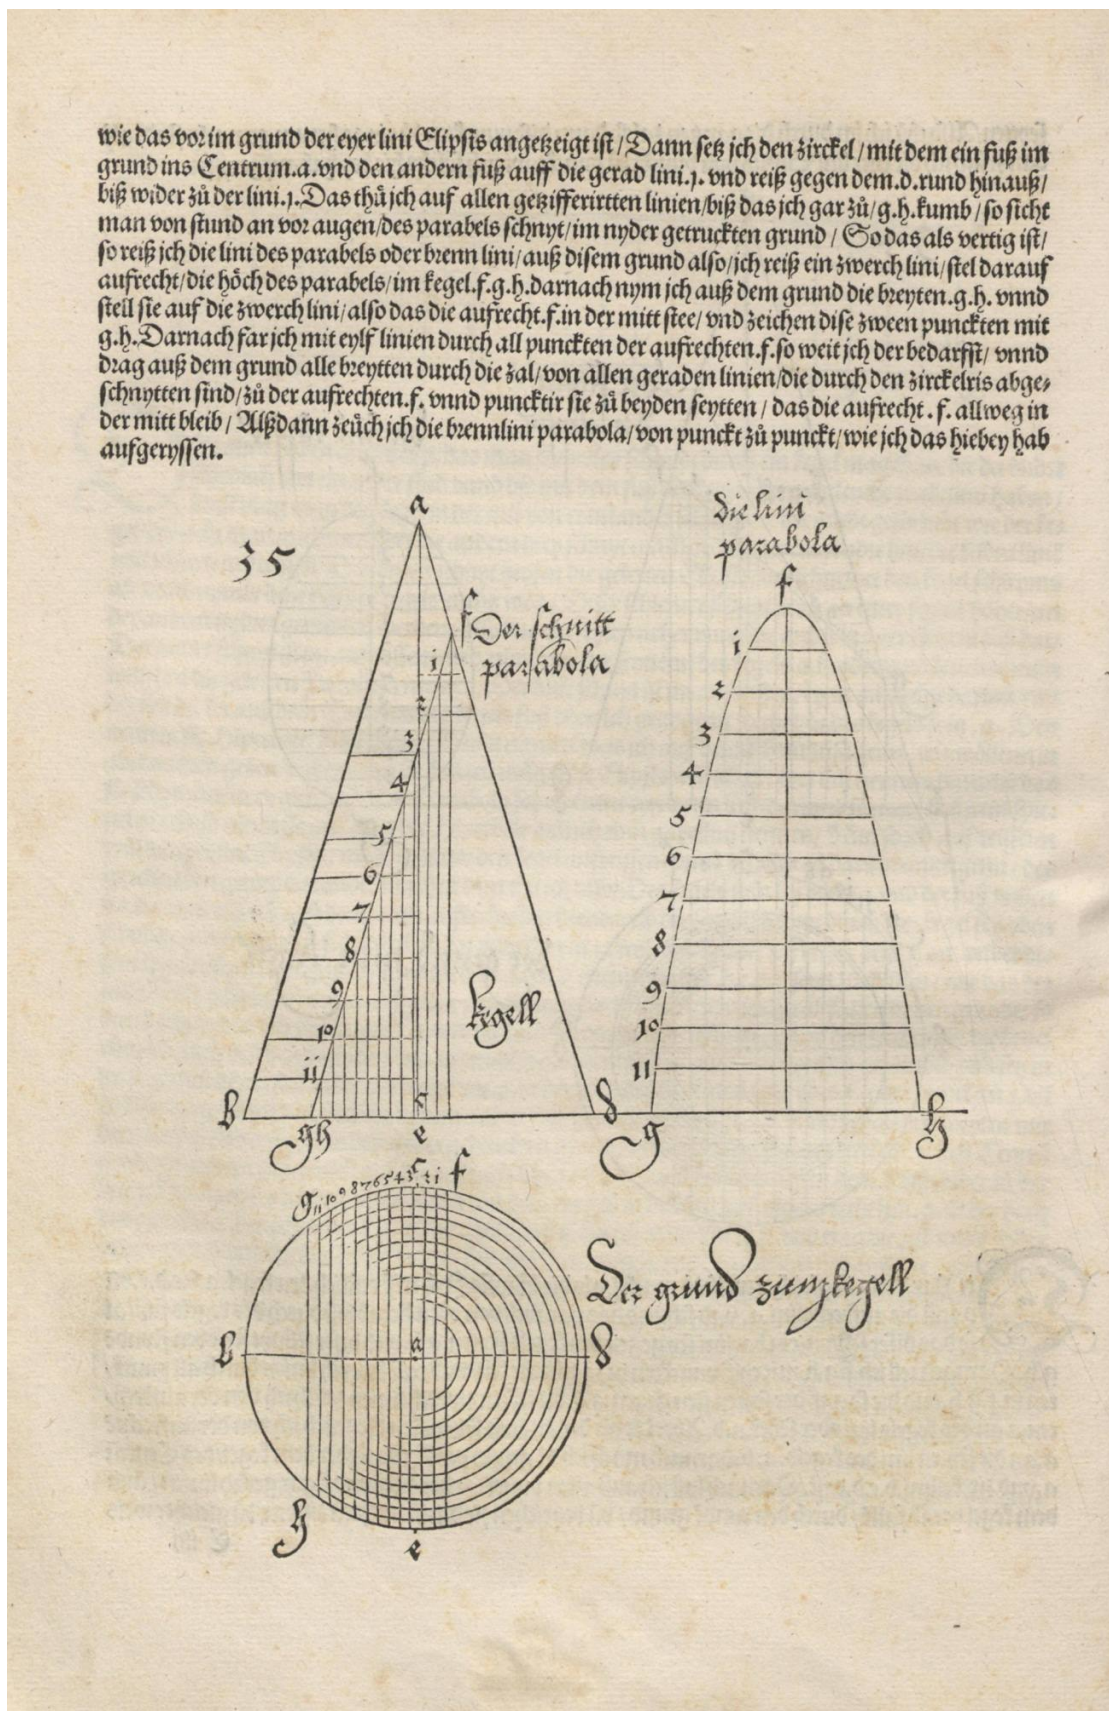 wie das vor im grund der eyer lini Elipsis angetzeigt ist / Dann setz jch den zirckel / mit dem ein fuß im
grund ins Centrum .a. vnd den andern fuß auff die gerad lini .1. vnd reiß gegen dem .d. rund hinauß /
biß wider zů der lini .1. Das thů jch auf allen getzifferirtten linien / biß das jch gar zů / g.h. kumb / so sicht
man von stund an vor augen / des parabels schnyt / im nyder getruckten grund / So das als vertig ist /
so reiß jch die lini des parabels oder brenn lini / auß disem grund also / jch reiß ein zwerch lini / stel darauf
aufrecht / die höch des parabels / im kegel .f.g.h. darnach nym jch auß dem grund die breyten .g.h. vnnd
stell sie auf die zwerch lini / also das die aufrecht .f. in der mitt stee / vnd zeichen dise zween punckten mit
g.h. Darnach far jch mit eylf linien durch all punckten der aufrechten .f. so weit jch der bedarfft / vnnd
drag auß dem grund alle breytten durch die zal / von allen geraden linien / die durch den zirckelris abge⸗
schnytten sind / zů der aufrechten .f. vnnd puncktir sie zů beyden seytten / das die aufrecht .f. allweg in
der mitt bleib / Alßdann zeüch jch die brennlini parabola / von punckt zů punckt / wie jch das hiebey hab
aufgeryssen.
35
a
die lini
parabola
f
f
Der schnitt
parabola
1
2
3
4
5
6
7
8
9
10
11
1
2
3
4
5
6
7
8
9
10
11
kegell
b
c
d
gh
e
g
h
g 11 10 9 8 7 6 5 4 3 c 2 1 f
Der grund zum kegell
b
a
d
h
e